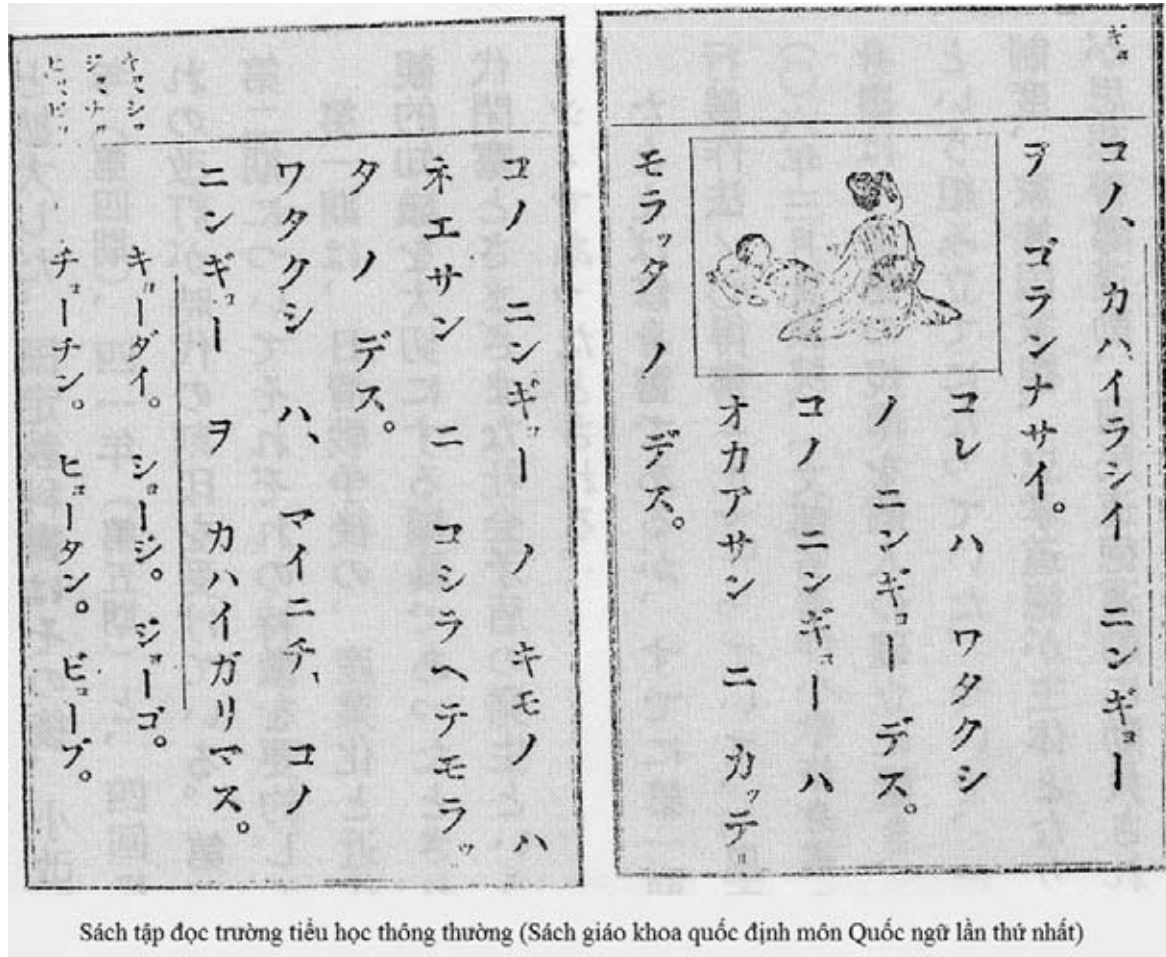 ギョ
コノ、カハイラシイ ニンギョー
ヲ ゴランナサイ。
コレ ハ ワタクシ
ノ ニンギョー デス。
コノ ニンギョー ハ
オカアサン ニ カッテ
モラッタ ノ デス。
キョショ
ジョチョ
ヒョビョ
コノ ニンギョー ノ キモノ ハ
ネエサン ニ コシラヘテモラッ
タ ノ デス。
ワタクシ ハ、マイニチ、コノ
ニンギョー ヲ カハイガリマス。
キョーダイ。ショージ。ジョーゴ。
チョーチン。ヒョータン。ビョーブ。
Sách tập đọc trường tiểu học thông thường (Sách giáo khoa quốc định môn Quốc ngữ lần thứ nhất)